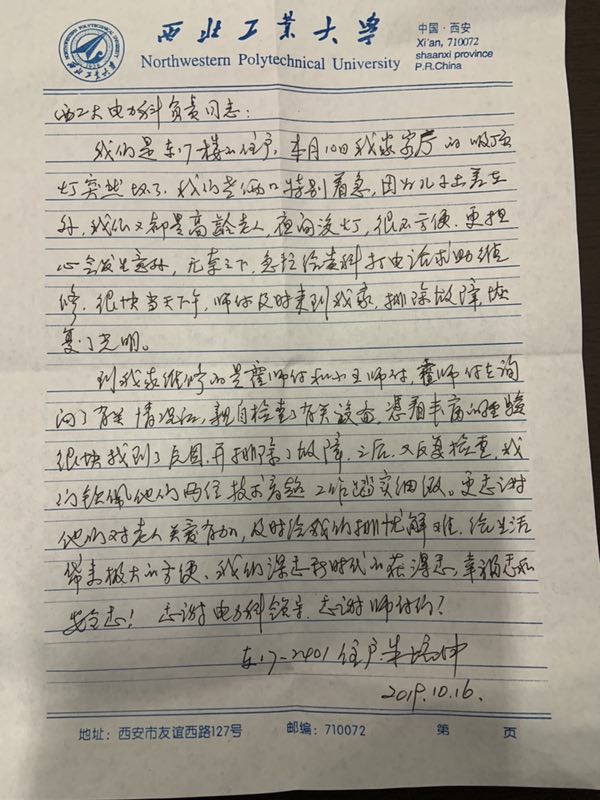 西北工业大学
Northwestern Polytechnical University
中国·西安
Xi'an, 710072
shaanxi province
P.R.China
西工大电力科负责同志:
我们是东17楼的住户,本月10日我家客厅的吸顶
灯突然坏了,我们老俩口特别着急,因为儿子出差在
外,我们又都是高龄老人,夜间没灯,很不方便,更担
心会发生意外,无奈之下,急忙给贵科打电话求助维
修,很快当天下午,师付及时来到我家,排除故障,恢
复了光明。
到我家维修的是霍师付和小王师付,霍师付在询
问了有关情况后,亲自检查了有关设备,凭着丰富的经验
很快找到了原因,并排除了故障,之后,又反复检查,我
们钦佩他们两位技术高超,工作踏实细致。更感谢
他们对老人关爱有加,及时给我们排忧解难,给生活
带来极大的方便、我们深感新时代的获得感,幸福感和
安全感!感谢电力科领导,感谢师付们?
东17-2401住户:朱
2019.10.16.
地址:西安市友谊西路127号
邮编:710072
第 页